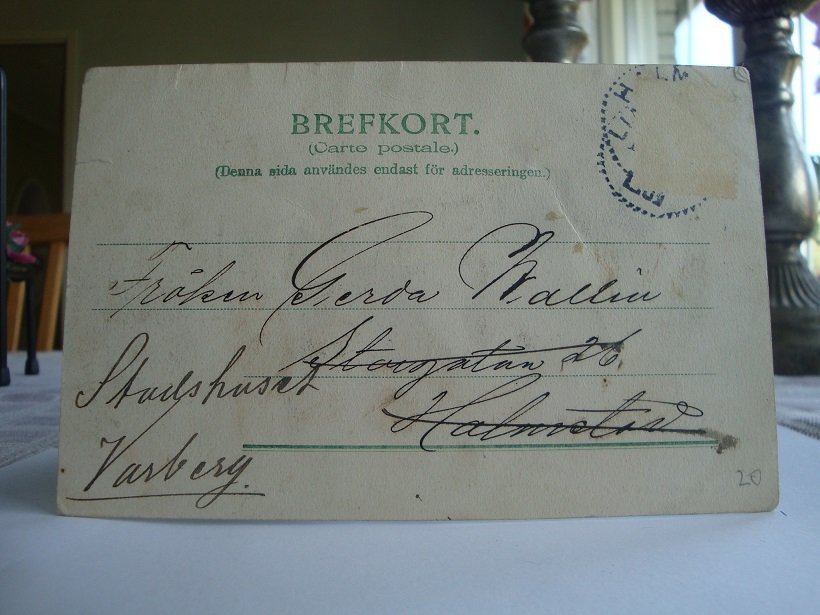 BREFKORT.
(Carte postale.)
(Denna sida användes endast för adresseringen.)
Fröken Gerda Wallin
Storgatan 26
Halmstad
Stadshuset
Varberg.
20